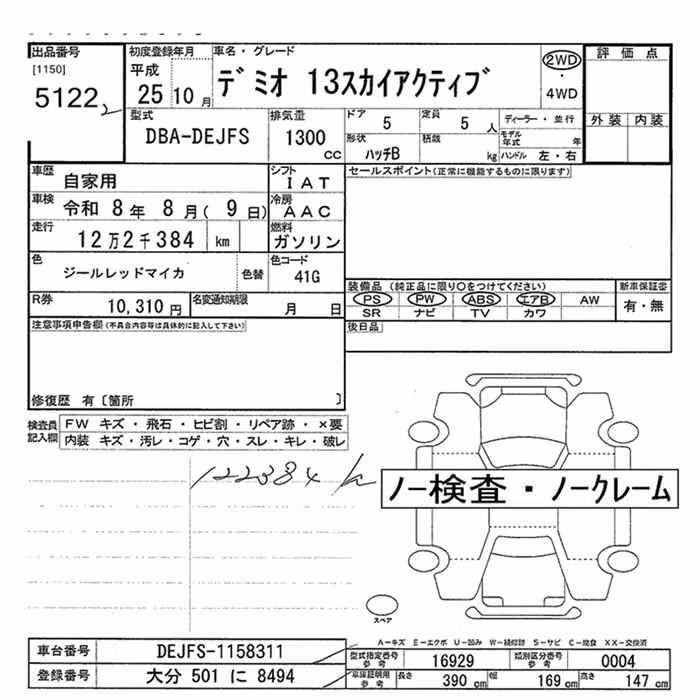 出品番号
[1150]
5122 2
初度登録年月
平成
25 10 月
車名・グレード
デミオ 13スカイアクティブ
2WD
・
4WD
評価点
外装 内装
型式
DBA-DEJFS
排気量
1300
CC
ドア 5
定員 5 人
ディーラー・並行
形状
ハッチB
積載
kg
モデル年式 年
ハンドル 左・右
車歴 自家用
シフト
IAT
セールスポイント(正常に機能するものに限ります)
車検 令和 8年 8月( 9日)
冷房
AAC
走行 12万2千384 km
燃料
ガソリン
色 ジールレッドマイカ 色替
色コード
41G
装備品 (純正品に限り○をつけてください)
新車保証書
PS PW ABS エアB AW
有・無
SR ナビ TV カワ
R券 10,310円
名変通知期限 月 日
後日品
注意事項申告欄(不具合内容等は具体的に記入して下さい)
修復歴 有〔箇所 〕
検査員
記入欄
FW キズ・飛石・ヒビ割・リペア跡・×要
内装 キズ・汚レ・コゲ・穴・スレ・キレ・破レ
122384 k
ノー検査・ノークレーム
スペア
A-キズ E-エクボ U-凹み W-補修跡 S-サビ C-腐食 XX-交換済
車台番号 DEJFS-1158311
型式指定番号
参考
16929
類別区分番号
参考
0004
登録番号 大分 501 に 8494
車庫証明用
参考
長さ 390 cm
幅 169 cm
高さ 147 cm